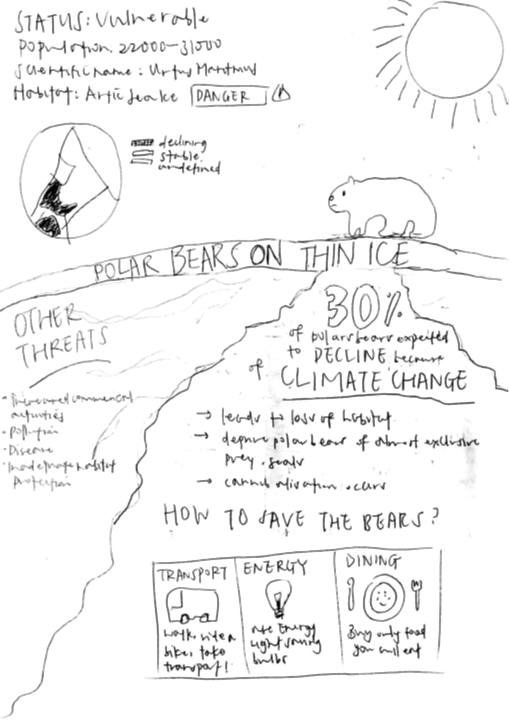 STATUS: Vulnerable
Population: 22000-31000
Scientific name: Ursus Maritimus
Habitat: Artic
DANGER
declining
stable
undefined
POLAR BEARS ON THIN ICE
30%
of polar bears expected
to DECLINE because
of CLIMATE CHANGE
→ leads to loss of habitat
→ deprive polar bears of almost exclusive
prey - seals
→ cannibalisation occurs
OTHER
THREATS
• Increased commercial
activities
• Pollution
• Disease
• Inadequate habitat
Protection
HOW TO SAVE THE BEARS?
TRANSPORT
walk, ride a
bike, take
transport!
ENERGY
use Energy
light saving
bulbs
DINING
Buy only food
you will eat